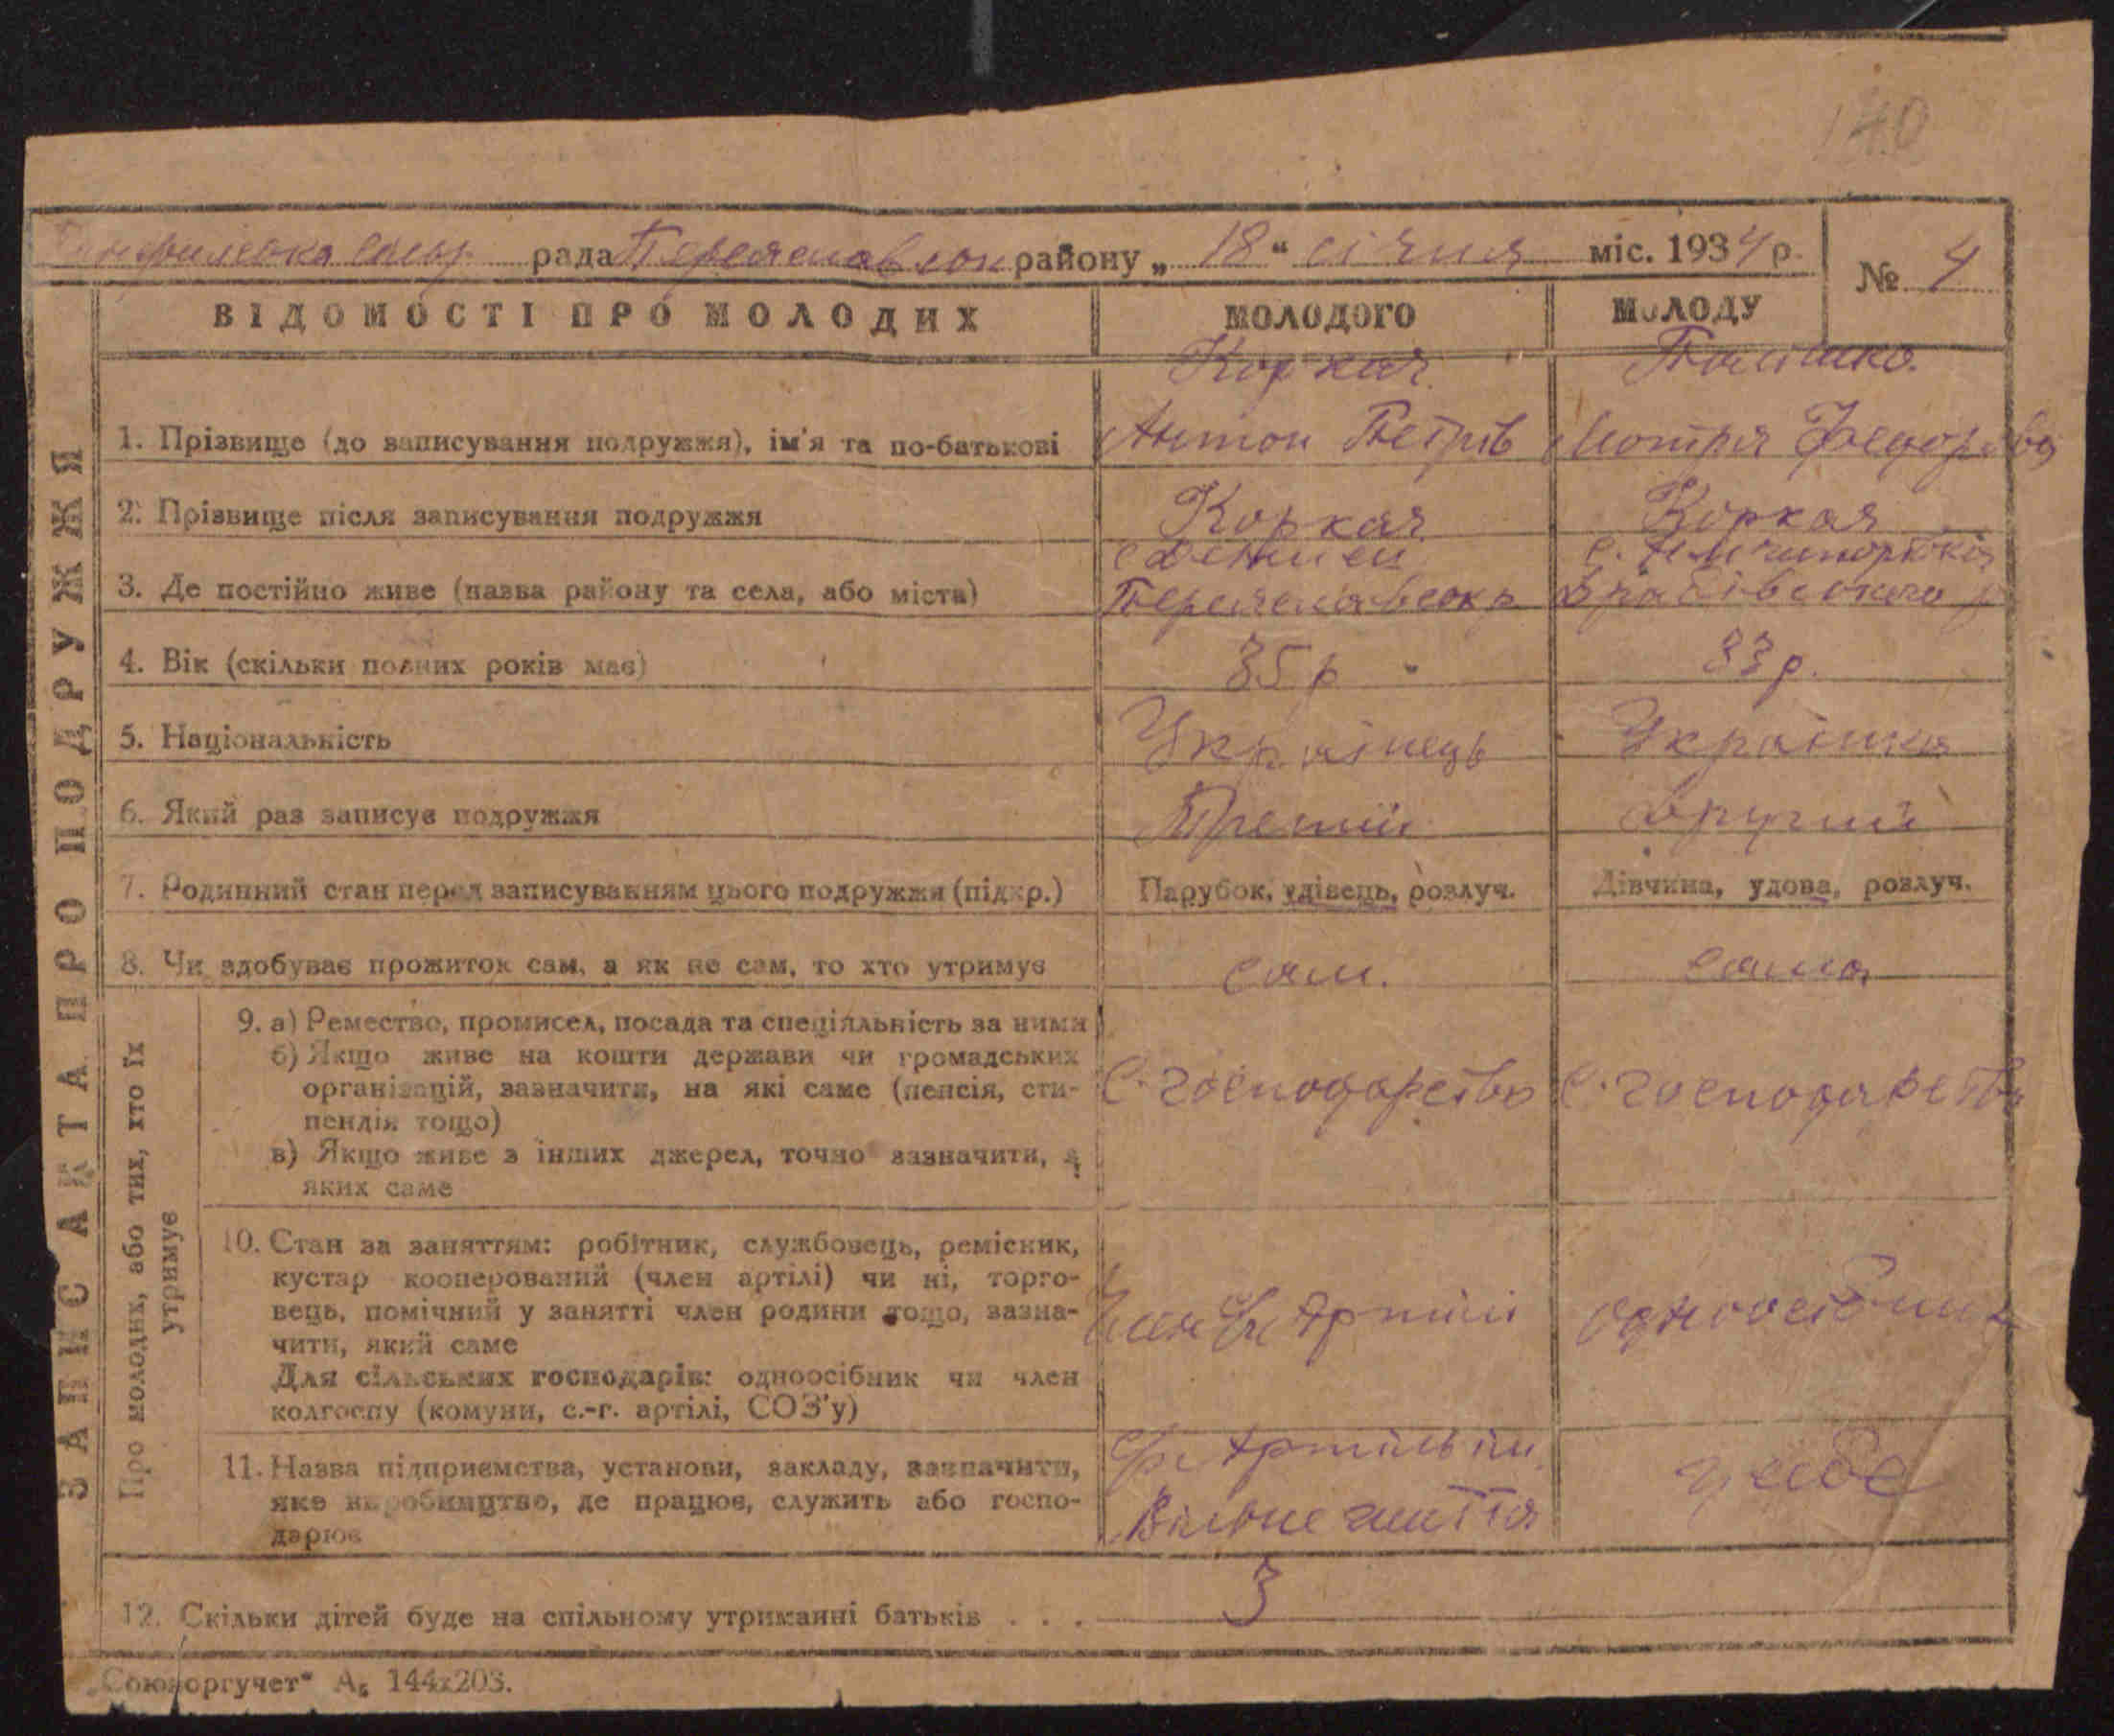 140
рада Переяславськ району „ 18 “ січня міс. 1934 р. № 4
ВІДОМОСТІ ПРО МОЛОДИХ МОЛОДОГО МОЛОДУ
ЗАПИС АКТА ПРО ПОДРУЖЖЯ
Коркач
1. Прізвище (до записування подружжя), ім'я та по-батькові Антон Петрів Мотря Федорова
2. Прізвище після записування подружжя Коркач Коркач
3. Де постійно живе (назва району та села, або міста) Переяславськ р. Драбівського р
4. Вік (скільки повних років має) 35 р 33 р.
5. Національність Українець Українка
6. Який раз записує подружжя Третій Другий
7. Родинний стан перед записуванням цього подружжя (підкр.) Парубок, удівець, розлуч. Дівчина, удова, розлуч.
8. Чи здобуває прожиток сам, а як не сам, то хто утримує сам. сама
Про молодих, або тих, хто їх
утримує
9. а) Ремество, промисел, посада та спеціяльність за ними
б) Якщо живе на кошти держави чи громадських
організацій, зазначити, на які саме (пенсія, сти-
пендія тощо)
С. господарство С. господарство
в) Якщо живе з інших джерел, точно зазначити, з
яких саме
10. Стан за заняттям: робітник, службовець, ремісник,
кустар кооперований (член артілі) чи ні, торго-
вець, помічний у занятті член родини тощо, зазна-
чити, який саме
Член Артілі одноосібник
Для сільських господарів: одноосібник чи член
колгоспу (комуни, с.-г. артілі, СОЗ'у)
11. Назва підприємства, установи, закладу, зазначити,
яке виробництво, де працює, служить або госпо-
дарює
Вільне життя
у себе
12. Скільки дітей буде на спільному утриманні батьків . . . 3
„Союзоргучет“ А₅ 144х203.